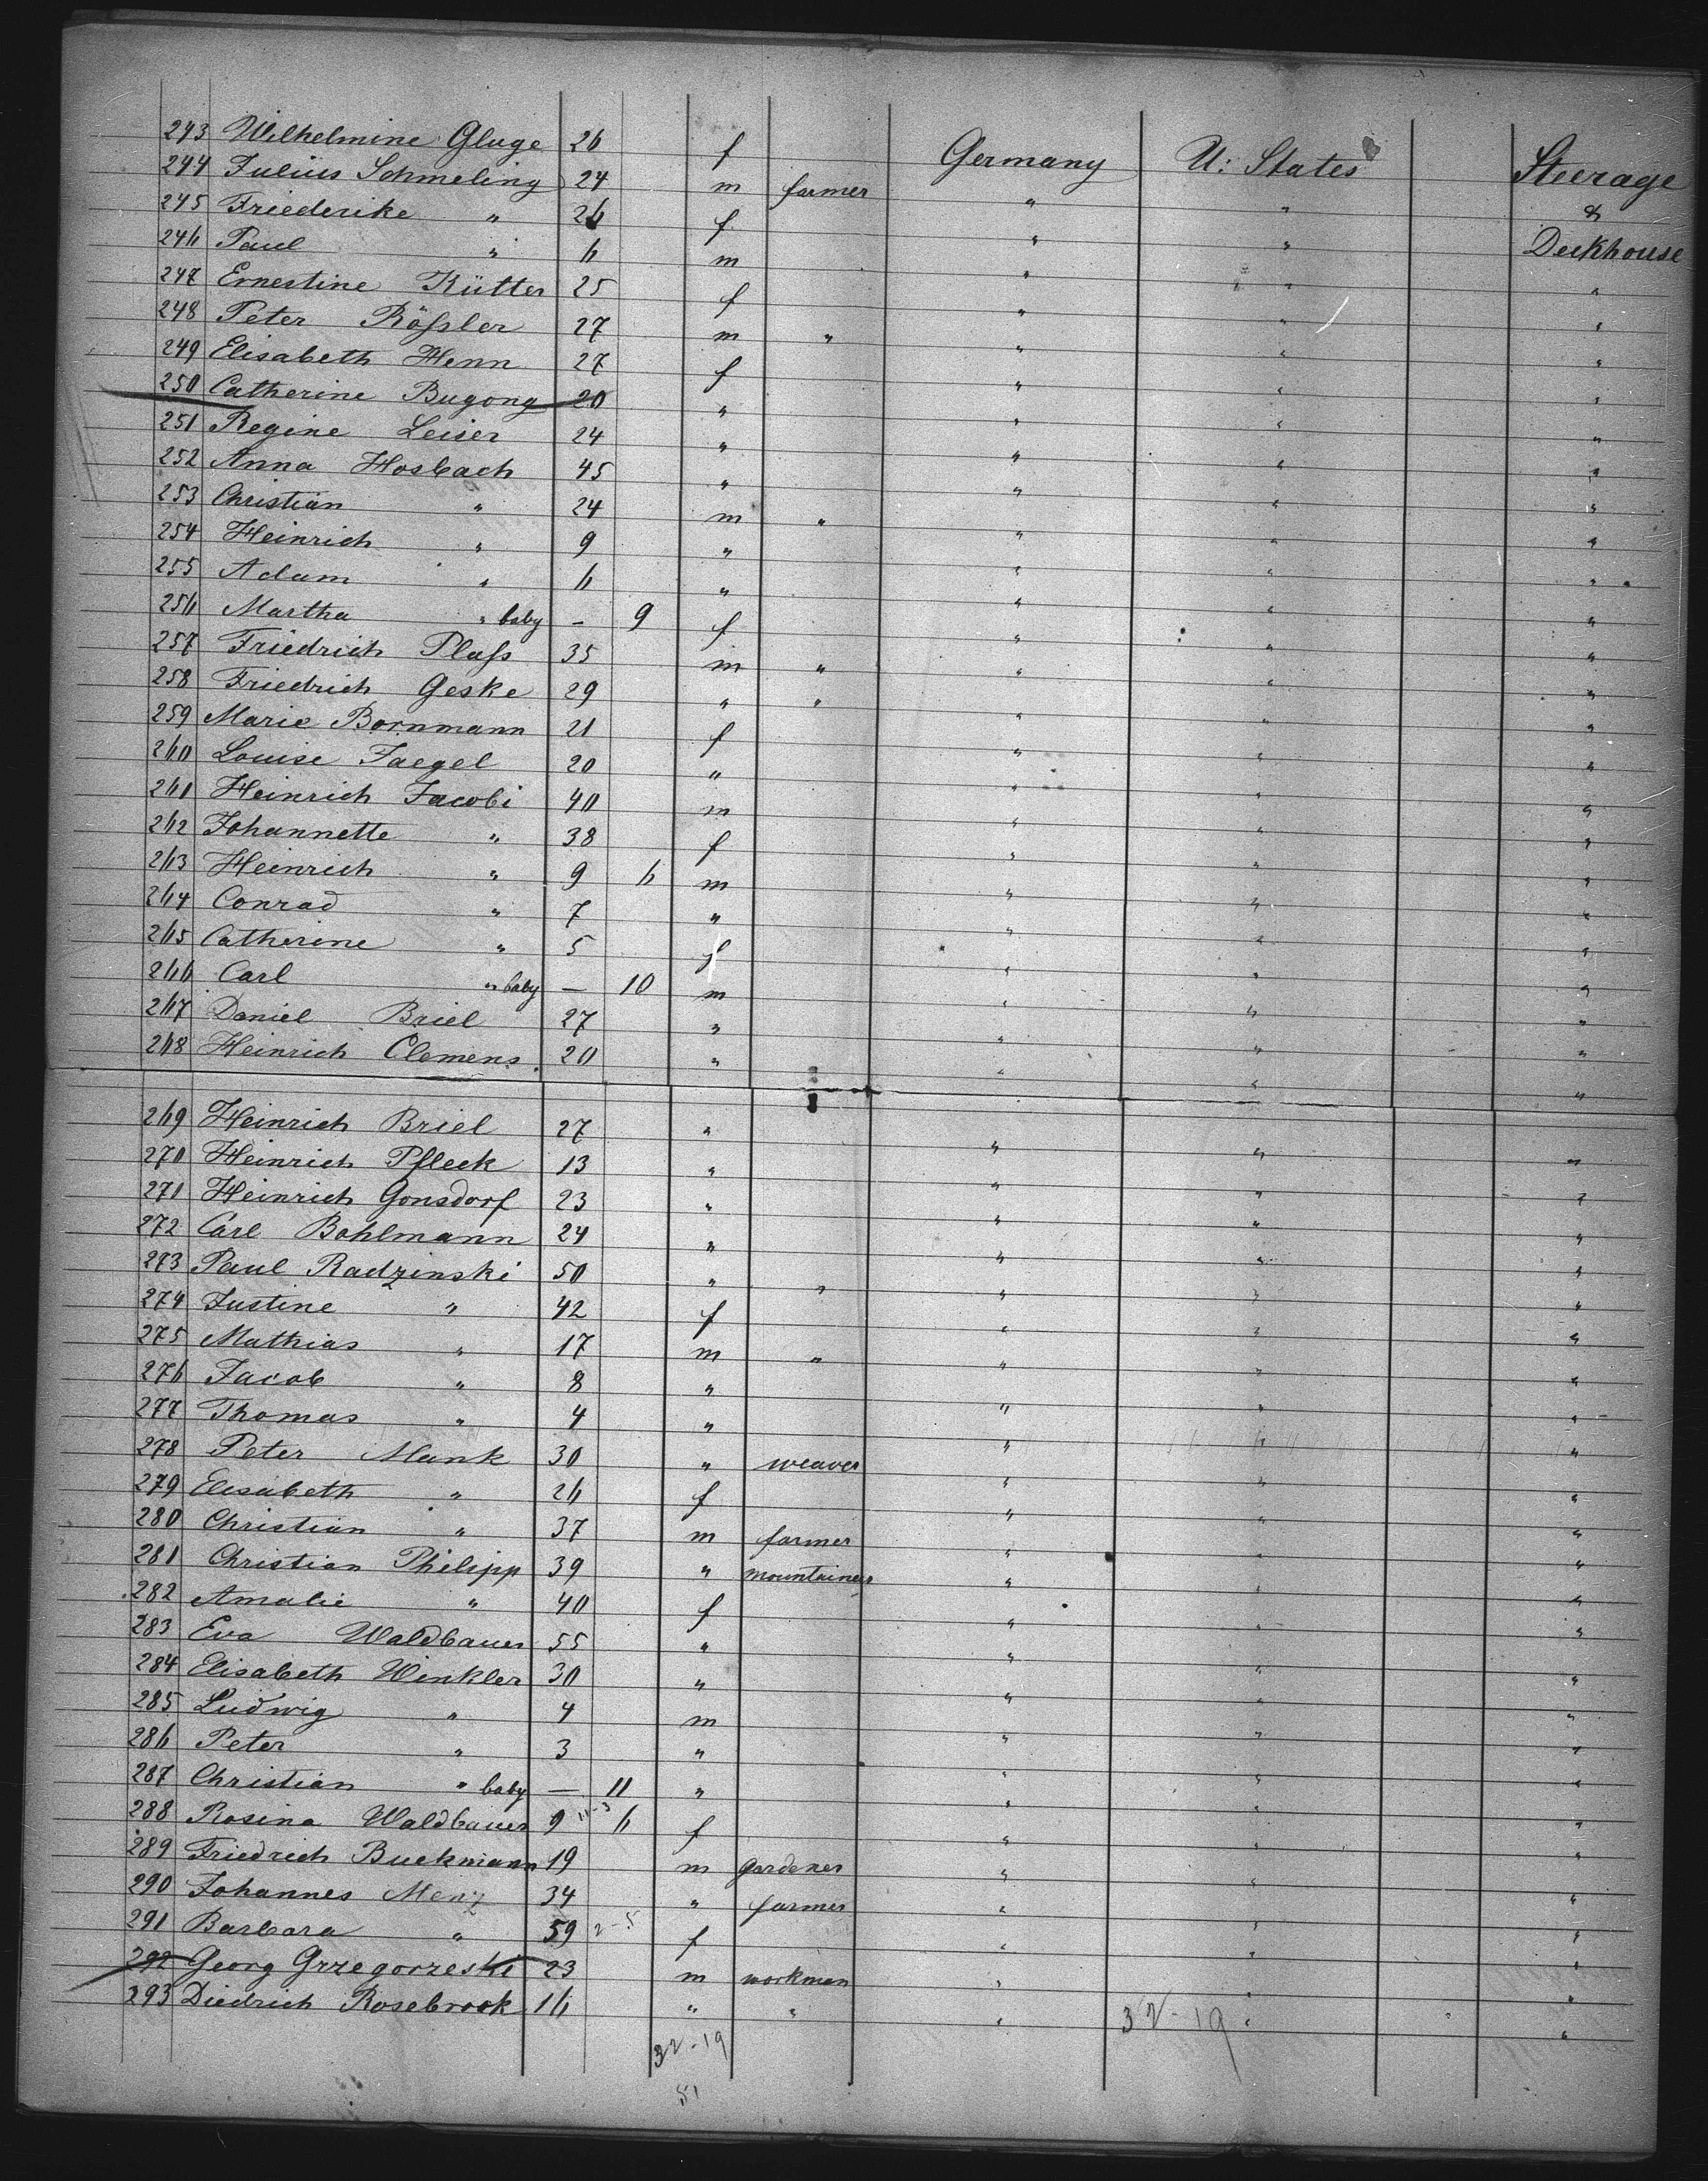 243 Wilhelmine Gluge 26 f Germany U: States Steerage
244 Julius Schmeling 24 m farmer " " &
245 Friederike " 26 f " " Deckhouse
246 Paul " 6 m " " "
247 Ernestine Kütter 25 f " " "
248 Peter Rößler 27 m " " " "
249 Elisabeth Henn 27 f " " "
250 Catherine Bugong 20 " " " "
251 Regine Leiser 24 " " " "
252 Anna Hosbach 45 " " " "
253 Christian " 24 m " " " "
254 Heinrich " 9 " " " "
255 Adam " 6 " " " "
256 Martha " baby – 9 f " " "
257 Friedrich Plaß 35 m " " " "
258 Friedrich Geske 29 " " " " "
259 Marie Bornmann 21 f " " "
260 Louise Jaegel 20 " " " "
261 Heinrich Jacobi 40 m " " "
262 Johannette " 38 f " " "
263 Heinrich " 9 6 m " " "
264 Conrad " 7 " " " "
265 Catherine " 5 f " " "
266 Carl " baby – 10 m " " "
267 Daniel Briel 27 " " " "
268 Heinrich Clemens 20 " " " "
269 Heinrich Briel 27 " " " "
270 Heinrich Pfleck 13 " " " "
271 Heinrich Gonsdorf 23 " " " "
272 Carl Bohlmann 24 " " " "
273 Paul Radzinski 50 " " " " "
274 Justine " 42 f " " "
275 Mathias " 17 m " " " "
276 Jacob " 8 " " " "
277 Thomas " 4 " " " "
278 Peter Munk 30 " weaver " " "
279 Elisabeth " 26 f " " "
280 Christian " 37 m farmer " " "
281 Christian Philipp 39 " mountaineer " " "
282 Amalie " 40 f " " "
283 Eva Waldbauer 55 " " " "
284 Elisabeth Winkler 30 " " " "
285 Ludwig " 4 m " " "
286 Peter " 3 " " " "
287 Christian " baby – 11 " " " "
288 Rosina Waldbauer 9 11-3 6 f " " "
289 Friedrich Buckmann 19 m gardener " " "
290 Johannes Menz 34 " farmer " " "
291 Barbara " 59 2-5 f " " "
292 Georg Grzegorzeski 23 m workman " " "
293 Diedrich Rosebrook 16 " " " " "
32-19 32-19
51